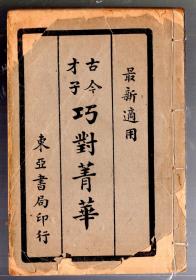 最新適用
古今
才子
巧對菁華
東亞書局印行